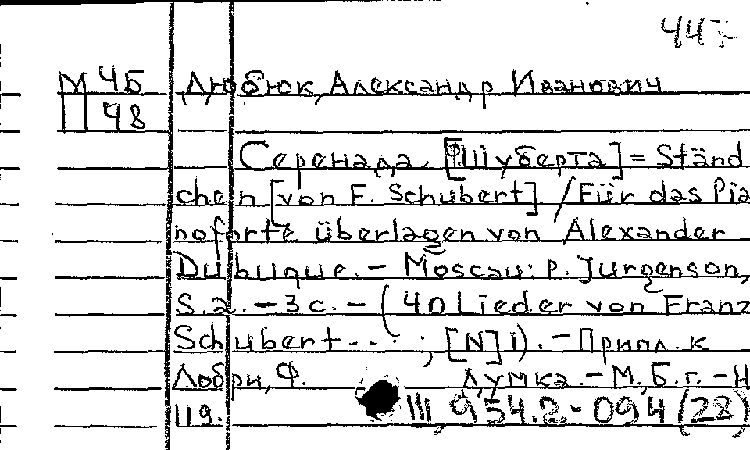 44-
М 4Б Дюбюк, Александр Иванович
П 48
Серенада [Шуберта] = Ständ
chen [von F. Schubert] / Für das Pia
noforte überlagen von Alexander
Dubuque. – Moscau: P. Jurgenson,
S.a. – 3 с. – (40 Lieder von Franz
Schubert... ; [N] 1). – Припл. к
Лобри, Ф. Думка. – М., Б.г. – Н
119. III, 954.2.- 094 (28)